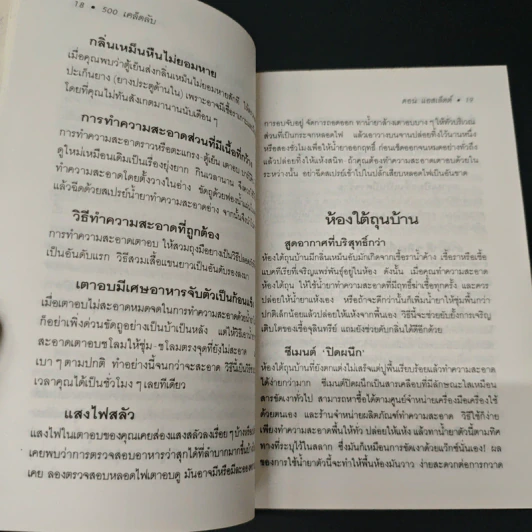 18 • 500 เคล็ดลับ
กลิ่นเหม็นหืนไม่ยอมหาย
เมื่อคุณพบว่าตู้เย็นส่งกลิ่นเหม็นไม่ยอมหายสักที
ปะเก็นยาง (ยางประตูด้านใน) เพราะอาจมีเชื้อรา
โดยที่คุณไม่ทันสังเกตมานานนับเดือน ๆ
การทำความสะอาดส่วนที่มีเนื้อที่
การทำความสะอาดราวหรือตะแกรง ตู้เย็น เตาอบ
ดูใหม่เหมือนเดิมเป็นเรื่องยุ่งยาก กินเวลานาน
ทำความสะอาดโดยตั้งวางในอ่าง ขัดถูด้วยฟอง
แล้วฉีดด้วยสเปรย์น้ำยาทำความสะอาดอ่าง จากนั้น
วิธีทำความสะอาดที่ถูกต้อง
การทำความสะอาดเตาอบ ให้สวมถุงมือยางเป็นวิธี
เป็นอันดับแรก วิธีสวมเสื้อแขนยาวเป็นอันดับรองลงมา
เตาอบมีเศษอาหารจับตัวเป็นก้อนแข็ง
เมื่อเตาอบไม่สะอาดหมดจดในการทำความสะอาด
ก็อย่าเพิ่งด่วนขัดถูอย่างเป็นบ้าเป็นหลัง แต่ให้ใช้
สะอาดเตาอบชโลมให้ชุ่ม ชโลมตรงจุดที่ยังไม่สะอาด
เบา ๆ ตามปกติ ทำอย่างนี้จนกว่าจะสะอาด วิธีนี้เป็น
เวลาคุณได้เป็นชั่วโมง ๆ เลยทีเดียว
แสงไฟสลัว
แสงไฟในเตาอบของคุณเคยส่องแสงสลัวลงเรื่อย ๆ บ้าง
เคยพบว่าการตรวจสอบอาหารว่าสุกได้ที่ลำบากมากขึ้น
เคย ลองตรวจสอบหลอดไฟเตาอบดู มันอาจมีหรือมี
ดอน แอสเล็ตต์ • 19
การอบจับอยู่ จัดการถอดออก ทาน้ำยาล้างเตาอบบาง ๆ ให้ทั่วบริเวณ
ส่วนที่เป็นกระจกหลอดไฟ แล้วเอาวางบนจานปล่อยทิ้งไว้นานหนึ่ง
หรือสองชั่วโมงเพื่อให้น้ำยาออกฤทธิ์ ก่อนเช็ดออกจนหมดอย่างทั่วถึง
แล้วปล่อยทิ้งให้แห้งสนิท ถ้าคุณต้องทำความสะอาดเตาอบด้วยใน
ระหว่างนั้น อย่าฉีดสเปรย์เข้าไปในปลั๊กเสียบหลอดไฟเป็นอันขาด
ห้องใต้ถุนบ้าน
สูดอากาศที่บริสุทธิ์กว่า
ห้องใต้ถุนบ้านมีกลิ่นเหม็นอับมักเกิดจากเชื้อราน้ำค้าง เชื้อราหรือเชื้อ
แบคทีเรียที่เจริญแพร่พันธุ์อยู่ในห้อง ดังนั้น เมื่อคุณทำความสะอาด
ห้องใต้ถุน ให้ใช้น้ำยาทำความสะอาดที่มีฤทธิ์ฆ่าเชื้อทุกครั้ง และควร
ปล่อยให้น้ำยาแห้งเอง หรือถ้าจะดีกว่านั้นก็เพิ่มน้ำยาให้ชุ่มพื้นกว่า
ปกติเล็กน้อยแล้วปล่อยให้แห้งจากพื้นเอง วิธีนี้จะช่วยยับยั้งการเจริญ
เติบโตของเชื้อจุลินทรีย์ แถมยังช่วยดับกลิ่นได้ดีอีกด้วย
ซีเมนต์ 'ปิดผนึก'
ห้องใต้ถุนบ้านที่ยังตกแต่งไม่เสร็จแต่ปูพื้นเรียบร้อยแล้วทำความสะอาด
ได้ง่ายกว่ามาก ซีเมนต์ปิดผนึกเป็นสารเคลือบที่มีลักษณะใสเหมือน
สารขัดเงาทั่วไป สามารถหาซื้อได้ตามศูนย์จำหน่ายเครื่องมือเครื่องใช้
ด้วยตนเอง และร้านจำหน่ายผลิตภัณฑ์ทำความสะอาด วิธีใช้ก็ง่าย
เพียงทำความสะอาดพื้นให้ทั่ว ปล่อยให้แห้ง แล้วทาน้ำยาตัวนี้ตามทิศ
ทางที่ระบุไว้ในสลาก ซึ่งมันก็เหมือนการขัดเงาด้วยแว็กซ์นั่นเอง! ผล
ของการใช้น้ำยาตัวนี้จะทำให้พื้นห้องมันวาว ง่ายสะดวกต่อการกวาด